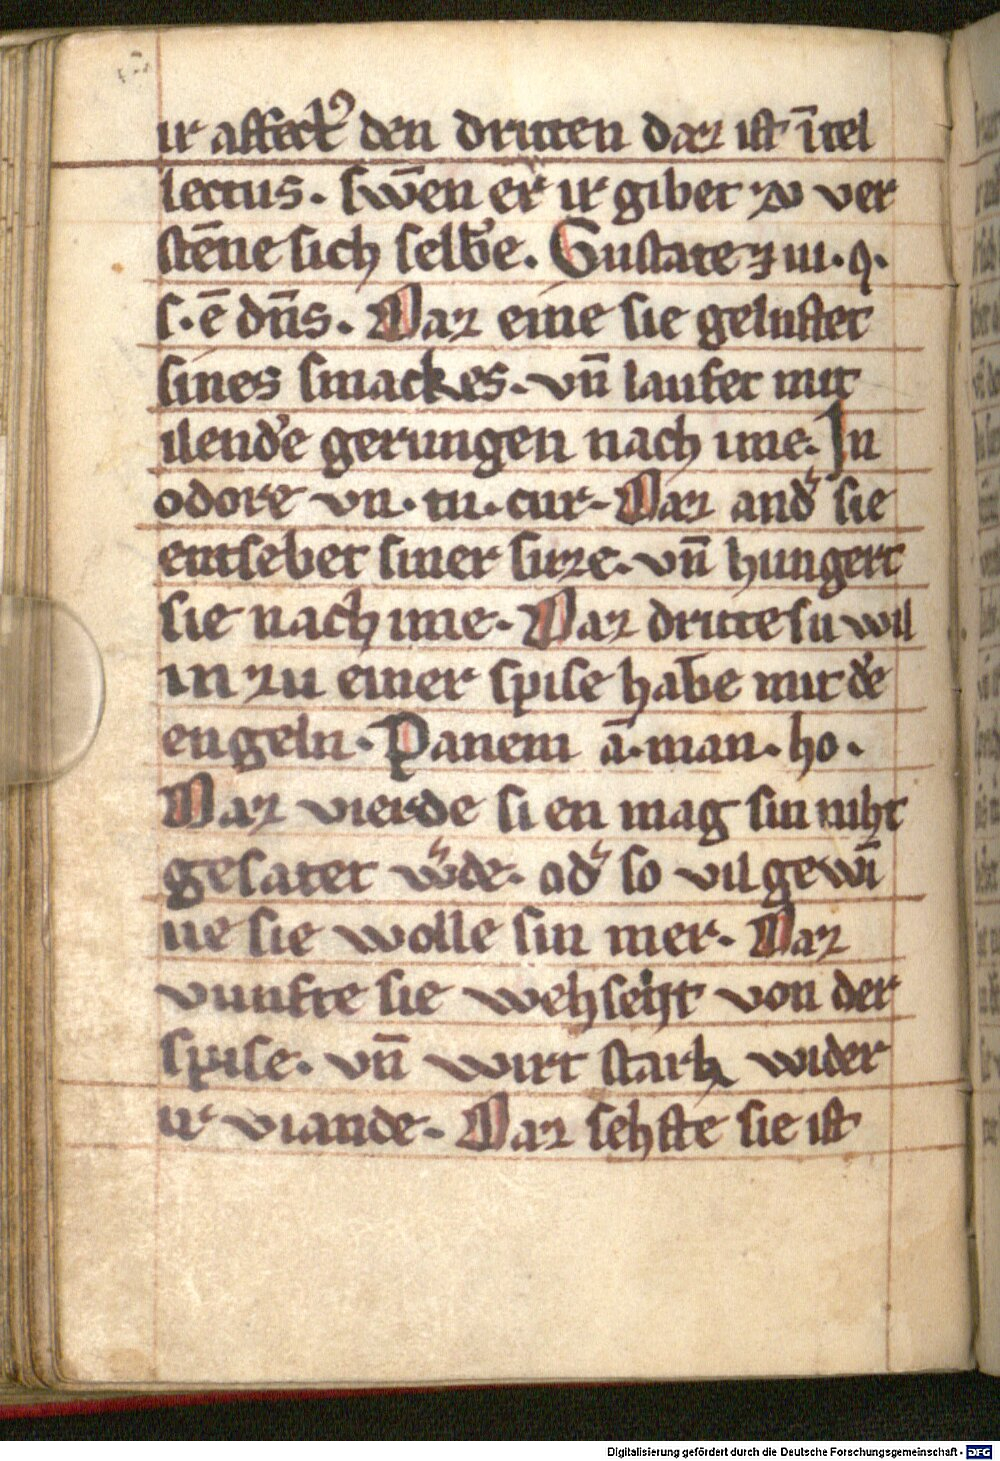 ir affect᾽ den dritten daz ist ītel
lectus. swēn er ir gibet zv ver
stēne sich selb̓e. Gustate ⁊ ui. q.
s. ē dn̄s. Daz eine sie gelustet
sines smackes. vn̄ laufet mit
ilend̓e gerungen nach ime. In
odore vn. tu. cur. Daz and̓ sie
entsebet siner suze. vn̄ hungert
sie nach ime. Daz dritte su wil
in zu einer spise hab̄e mit d̓e
engeln. Panem ā. man. ho.
Daz vierde si en mag sin niht
gesatet w̓de. od̓ so vil gewī
ne sie wolle sin mer. Daz
vunfte sie wehset von der
spise. vn̄ wirt stark wider
ir viande. Daz sehste sie ist
Digitalisierung gefördert durch die Deutsche Forschungsgemeinschaft - DFG